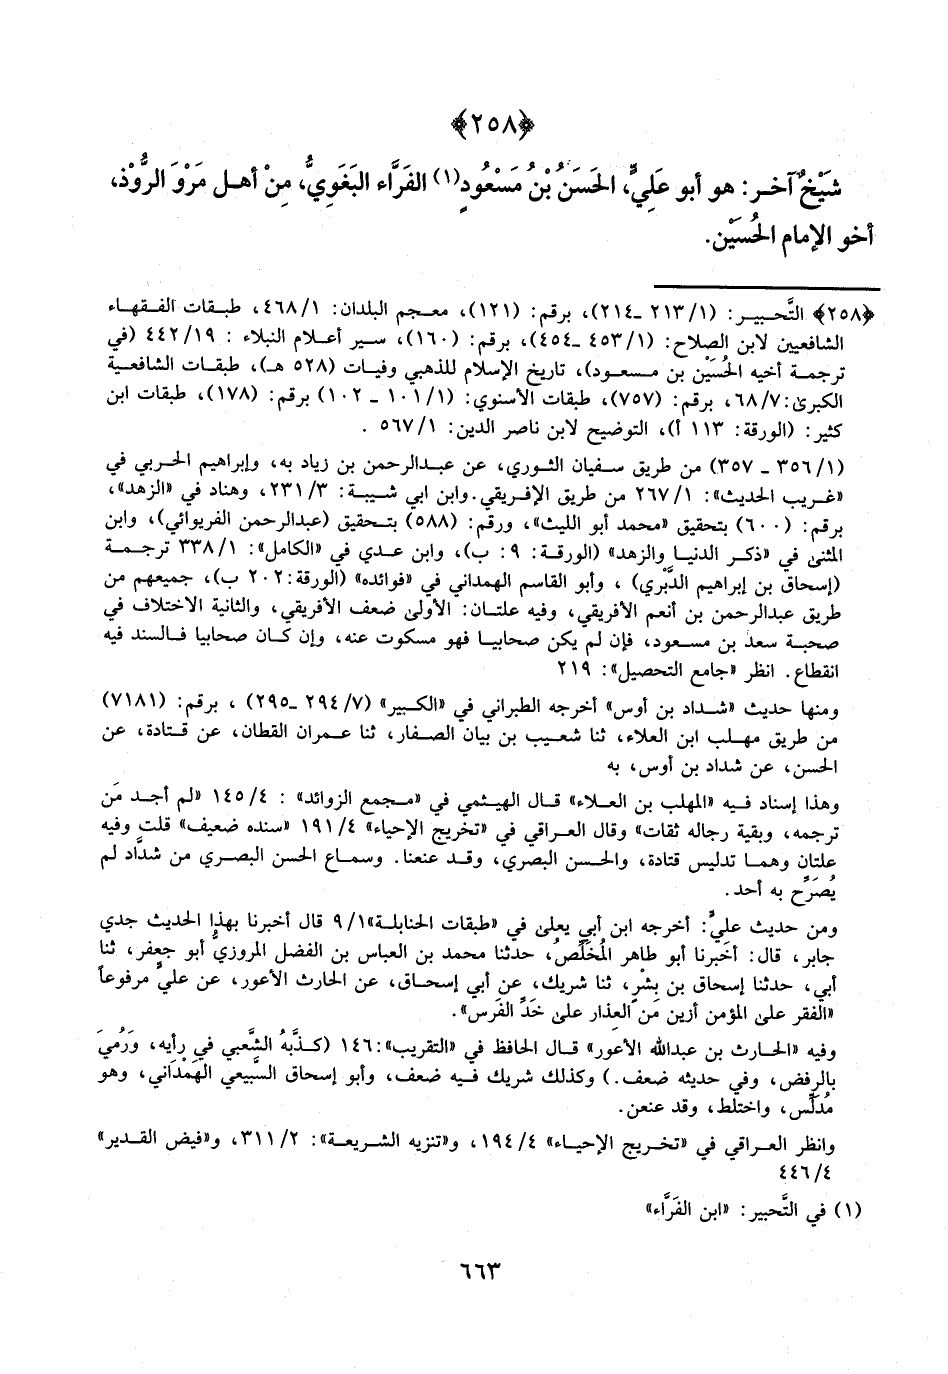 ﴿٢٥٨﴾
شَيْخٌ آخر: هو أبو عَلِيٍّ، الحَسَنُ بْنُ مَسْعُودٍ(١) الفَرَّاء البَغَوِيُّ، مِنْ أهل مَرْوَ الرُّوْذ،
أخو الإمام الحُسَيْن.
﴿٢٥٨﴾ التَّحبير: (١/ ٢١٣ ـ٢١٤)، برقم: (١٢١)، معجم البلدان: ١/ ٤٦٨، طبقات الفقهاء
الشافعيين لابن الصلاح: (١/ ٤٥٣ ـ٤٥٤)، برقم: (١٦٠)، سير أعلام النبلاء : ١٩/ ٤٤٢ (في
ترجمة أخيه الحُسَيْن بن مسعود)، تاريخ الإسلام للذهبي وفيات (٥٢٨ هـ)، طبقات الشافعية
الكبرى:٧/ ٦٨، برقم: (٧٥٧)، طبقات الأسنوي: (١/ ١٠١ ـ ١٠٢) برقم: (١٧٨)، طبقات ابن
كثير: (الورقة: ١١٣ أ)، التوضيح لابن ناصر الدين: ١/ ٥٦٧ .
(١/ ٣٥٦ ـ ٣٥٧) من طريق سفيان الثوري، عن عبدالرحمن بن زياد به، وإبراهيم الحربي في
«غريب الحديث»: ١/ ٢٦٧ من طريق الإفريقي.وابن ابي شيبة: ٣/ ٢٣١، وهناد في «الزهد»،
برقم: (٦٠٠) بتحقيق «محمد أبو الليث»، ورقم: (٥٨٨) بتحقيق (عبدالرحمن الفريوائي)، وابن
المثنى في «ذكر الدنيا والزهد» (الورقة: ٩: ب)، وابن عدي في «الكامل»: ١/ ٣٣٨ ترجمة
(إسحاق بن إبراهيم الدَّبْري) ، وأبو القاسم الهمداني في «فوائده» (الورقة:٢٠٢ ب)، جميعهم من
طريق عبدالرحمن بن أنعم الأفريقي، وفيه علتان: الأولى ضعف الأفريقي، والثانية الاختلاف في
صحبة سعد بن مسعود، فإن لم يكن صحابيا فهو مسكوت عنه، وإن كان صحابيا فالسند فيه
انقطاع. انظر «جامع التحصيل»: ٢١٩
ومنها حديث «شداد بن أوس» أخرجه الطبراني في «الكبير» (٧/ ٢٩٤ ـ٢٩٥) ، برقم: (٧١٨١)
من طريق مهلب ابن العلاء، ثنا شعيب بن بيان الصفار، ثنا عمران القطان، عن قتادة، عن
الحسن، عن شداد بن أوس، به
وهذا إسناد فيه «المهلب بن العلاء» قال الهيثمي في «مجمع الزوائد» : ٤/ ١٤٥ «لم أجد مَن
ترجمه، وبقية رجاله ثقات» وقال العراقي في «تخريج الإحياء» ٤/ ١٩١ «سنده ضعيف» قلت وفيه
علتان وهما تدليس قتادة، والحسن البصري، وقد عنعنا. وسماع الحسن البصري من شداد لم
يُصَرِّح به أحد.
ومن حديث عليٍّ: أخرجه ابن أبي يعلى في «طبقات الحنابلة»١/ ٩ قال أخبرنا بهذا الحديث جدي
جابر، قال: أخبرنا أبو طاهر المُخَلِّصُ، حدثنا محمد بن العباس بن الفضل المروزي أبو جعفر، ثنا
أبي، حدثنا إسحاق بن بِشْرٍ، ثنا شريك، عن أبي إسحاق، عن الحارث الأعور، عن عليٍّ مرفوعاً
«الفقر على المؤمن أزين مَن العذار على خَدِّ الفَرَس».
وفيه «الحارث بن عبدالله الأعور» قال الحافظ في «التقريب»:١٤٦ (كذَّبَهُ الشَّعبي في رأيه، وَرُمِيَ
بالرفض، وفي حديثه ضعف.) وكذلك شريك فيه ضعف، وأبو إسحاق السَّبِيعي الهَمْدَاني، وهو
مُدَلِّس، واختلط، وقد عنعن.
وانظر العراقي في «تخريج الإحياء» ٤/ ١٩٤، و«تنزيه الشريعة»: ٢/ ٣١١، و«فيض القدير»
٤/ ٤٤٦
(١) في التَّحبير: «ابن الفَرَّاء»
٦٦٣